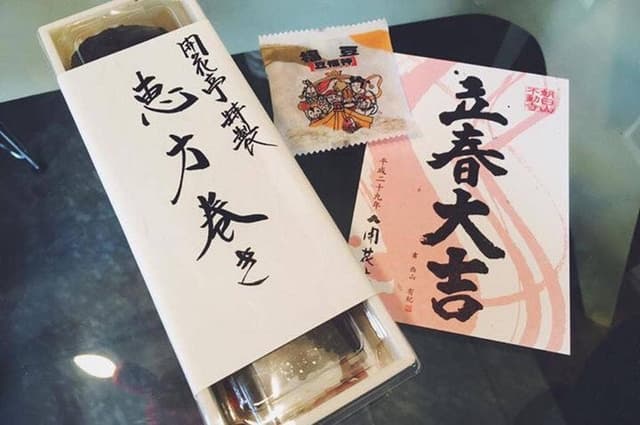 開花亭特製
恵方巻き
福豆
立春大吉
朝日山
不動寺
平成二十九年
開花
書 西山 有紀